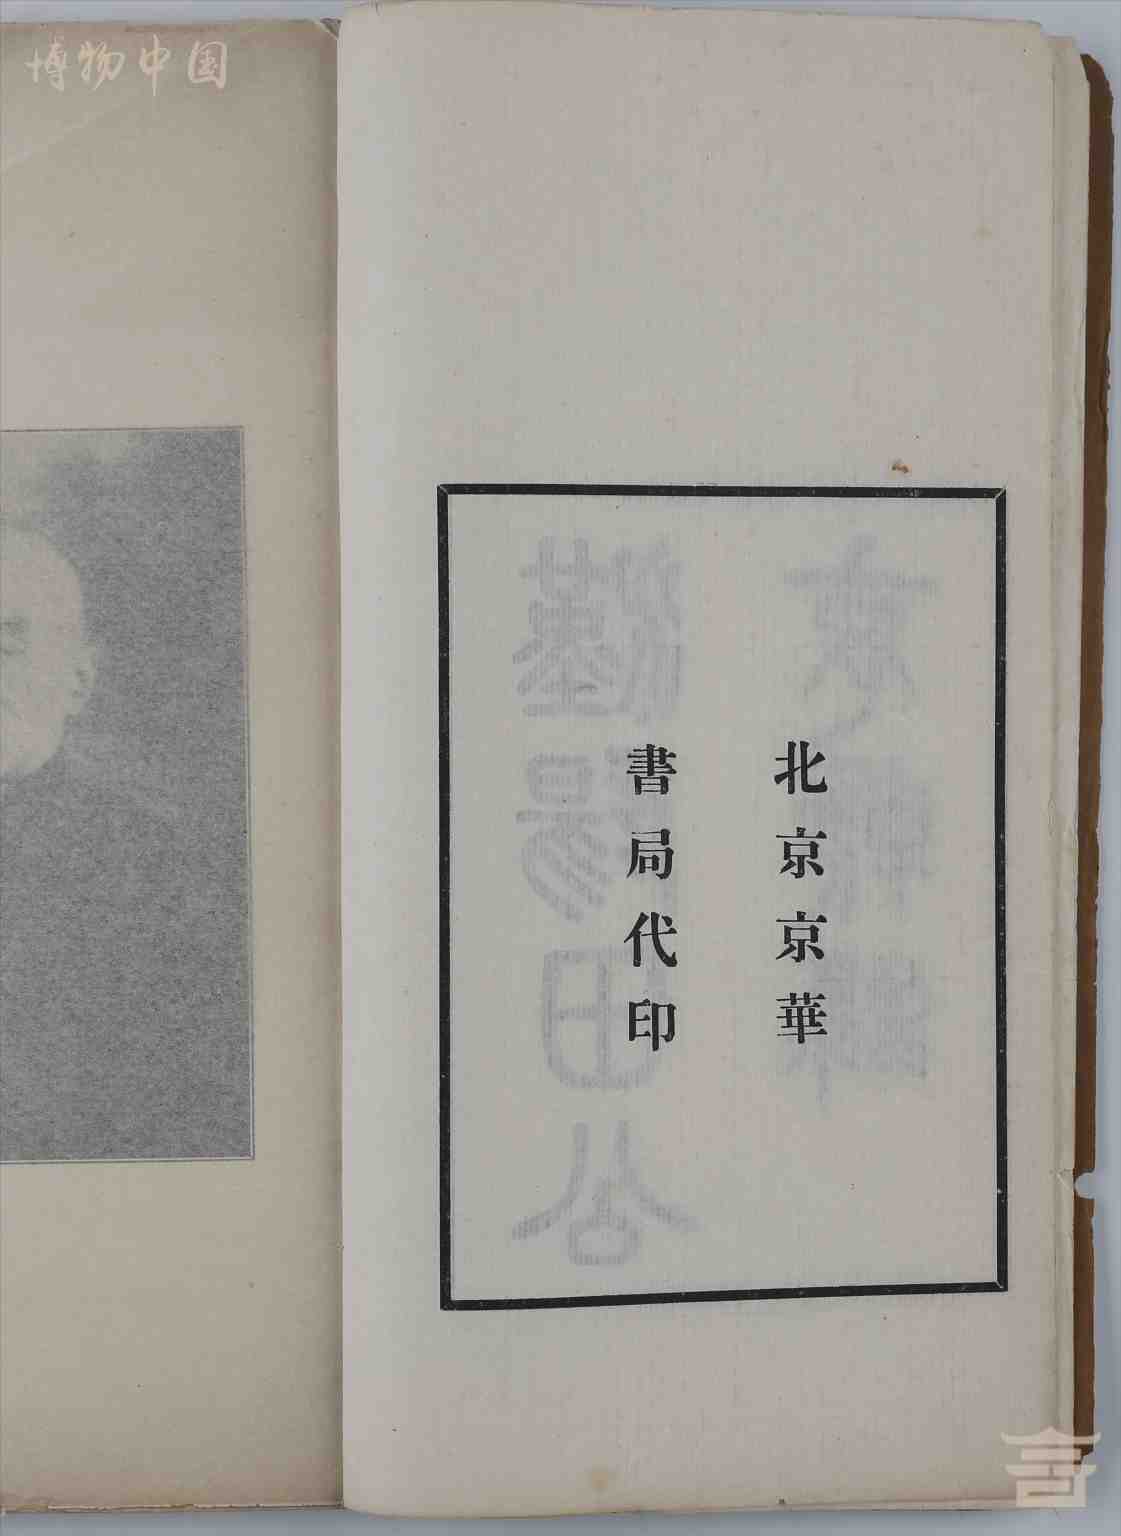 博物中国
北京京華
書局代印